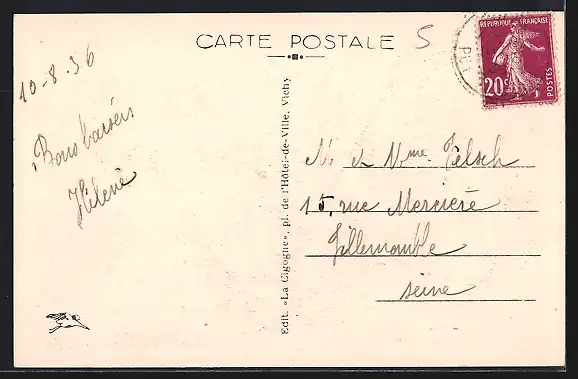 CARTE POSTALE
5
REPUBLIQUE FRANÇAISE
20c
POSTES
10-8-36
Bons baisers
Hélène
Edit. «La Cigogne», pl. de l'Hôtel-de-Ville, Vichy
M. et Mme Felsch
15, rue Mercière
Villemomble
Seine